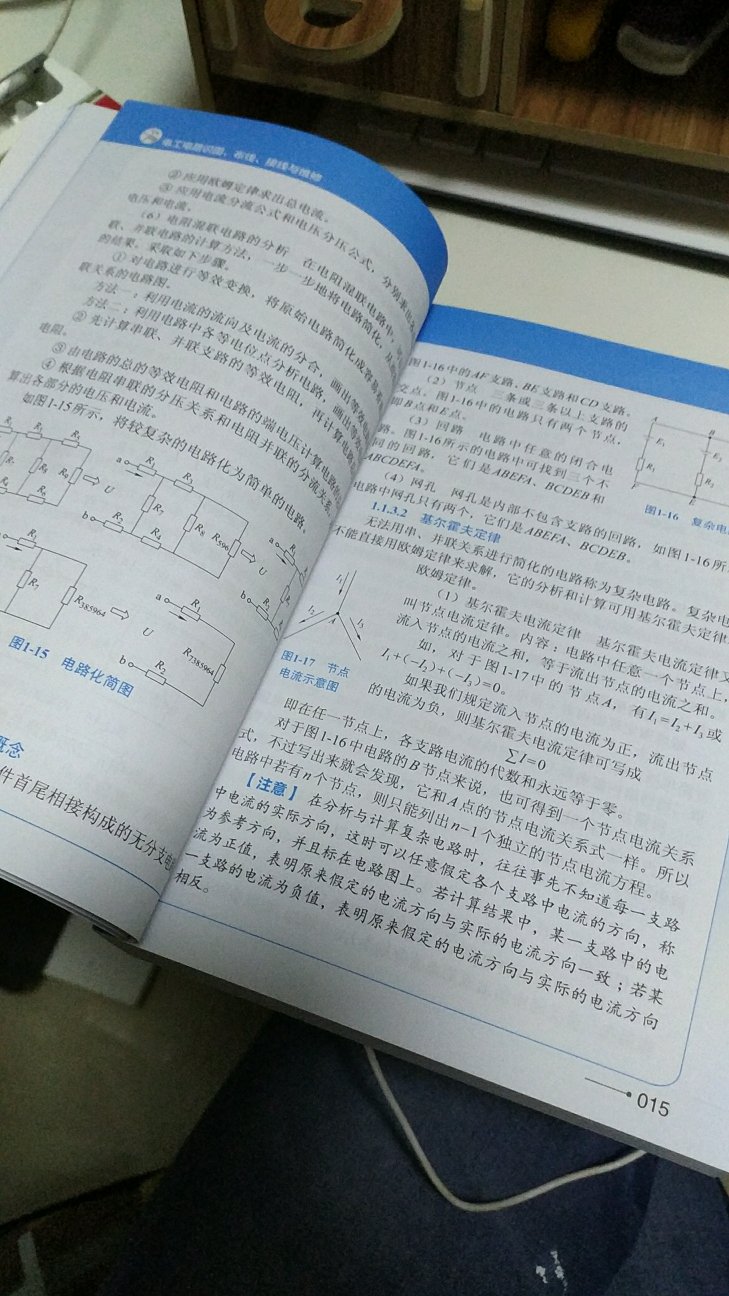 电工电路识图、布线、接线与维修
②应用欧姆定律求出总电流。
③应用电流分流公式和电压分压公式，分别求出
电压和电流。
（6）电阻混联电路的分析 在电阻混联电路中，
联、并联电路的计算方法，一步一步地将电路简化，从
的结果。采取如下步骤。
①对电路进行等效变换，将原始电路简化成容易
联关系的电路图。
方法一：利用电流的流向及电流的分合，画出等
方法二：利用电路中各等电位点分析电路，画出等
②先计算串联、并联支路的等效电阻，再计算电路
电阻。
③由电路的总的等效电阻和电路的端电压计算电路的
④根据电阻串联的分压关系和电阻并联的分流关系，
算出各部分的电压和电流。
如图1-15所示，将较复杂的电路化为简单的电路。
a R1 R3 R7 R8 R596 R2 R4 b U
R7 R385964 U a R1 R7385964 b R2
图1-15 电路化简图
概念
件首尾相接构成的无分支电
图1-16中的AF支路、BE支路和CD支路。
（2）节点 三条或三条以上支路的
交点。图1-16中的电路只有两个节点，
即B点和E点。
（3）回路 电路中任意的闭合电
路。图1-16所示的电路中可找到三个不
同的回路，它们是ABEFA、BCDEB和
ABCDEFA。
图1-16 复杂电
（4）网孔 网孔是内部不包含支路的回路，如图1-16所
电路中网孔只有两个，它们是ABEFA、BCDEB。
1.1.3.2 基尔霍夫定律
无法用串、并联关系进行简化的电路称为复杂电路。复杂电
不能直接用欧姆定律来求解，它的分析和计算可用基尔霍夫定律
欧姆定律。
（1）基尔霍夫电流定律 基尔霍夫电流定律又
叫节点电流定律。内容：电路中任意一个节点上，
流入节点的电流之和，等于流出节点的电流之和。
如，对于图1-17中的节点A，有I1=I2+I3或
I1+(-I2)+(-I3)=0。
I1 I2 I3 A
图1-17 节点
电流示意图
如果我们规定流入节点的电流为正，流出节点
的电流为负，则基尔霍夫电流定律可写成
∑I=0
即在任一节点上，各支路电流的代数和永远等于零。
对于图1-16中电路的B节点来说，也可得到一个节点电流关系
式，不过写出来就会发现，它和A点的节点电流关系式一样。所以
电路中若有n个节点，则只能列出n-1个独立的节点电流方程。
【注意】 在分析与计算复杂电路时，往往事先不知道每一支路
中电流的实际方向，这时可以任意假定各个支路中电流的方向，称
为参考方向，并且标在电路图上。若计算结果中，某一支路中的电
流为正值，表明原来假定的电流方向与实际的电流方向一致；若某
一支路的电流为负值，表明原来假定的电流方向与实际的电流方向
相反。
015